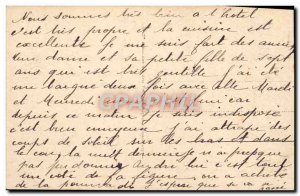 Nous sommes très bien à l'hotel
c'est très propre et la cuisine est
excellente je me suis fait des amies
une dame et sa petite fille de sept
ans qui est très gentille j'ai été
me baigner deux fois avec elle Mardi
et Mercredi car
depuis ce matin je suis indisposée
c'est bien ennuyeux j'ai attrapé des
coups de soleil sur les bras dans
le cou, la nuit dernière je n'ai presque
pas
côté de la figure on a acheté
de la j'espère que ce ne